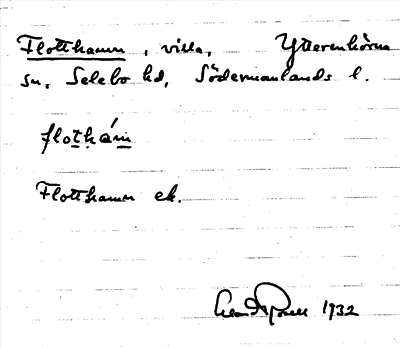 Flotthamn, villa, Ytterenhörna
sn, Selebo hd, Södermanlands l.
flothám
Flotthamn ek.
1932